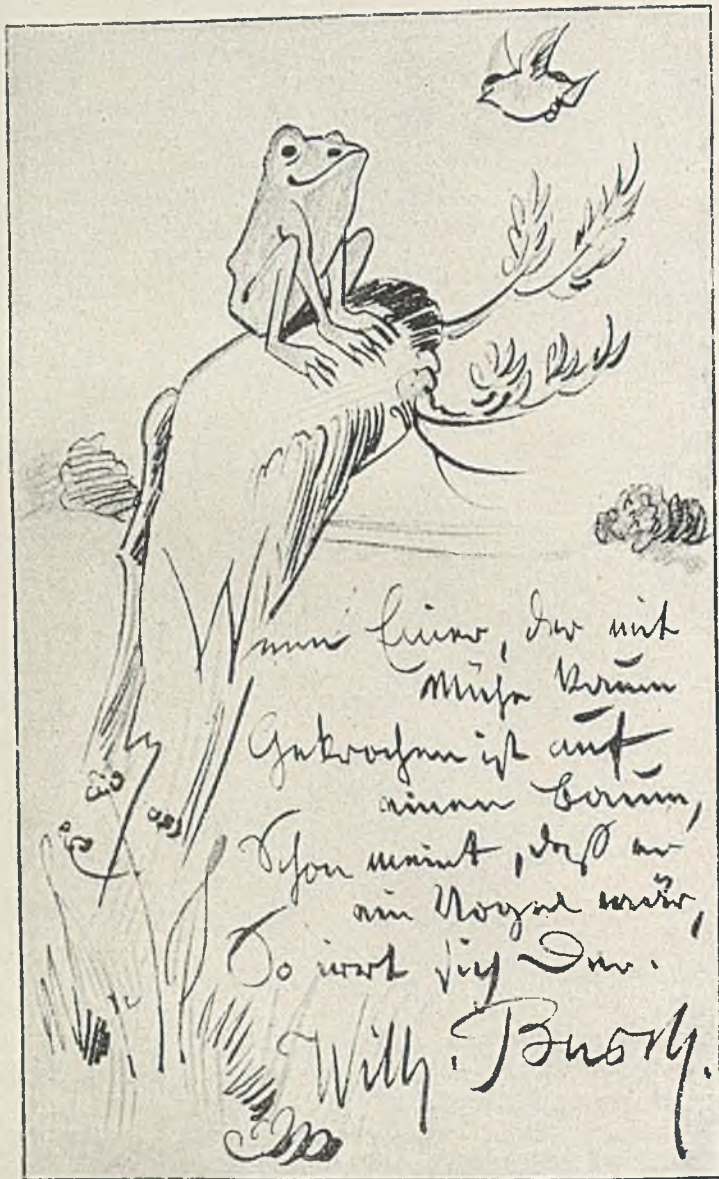 Wenn Einer, der mit
Mühe kaum
Gekrochen ist auf
einen Baum,
Schon meint, daß er
ein Vogel wär,
So irrt sich Der.
Wilh. Busch.